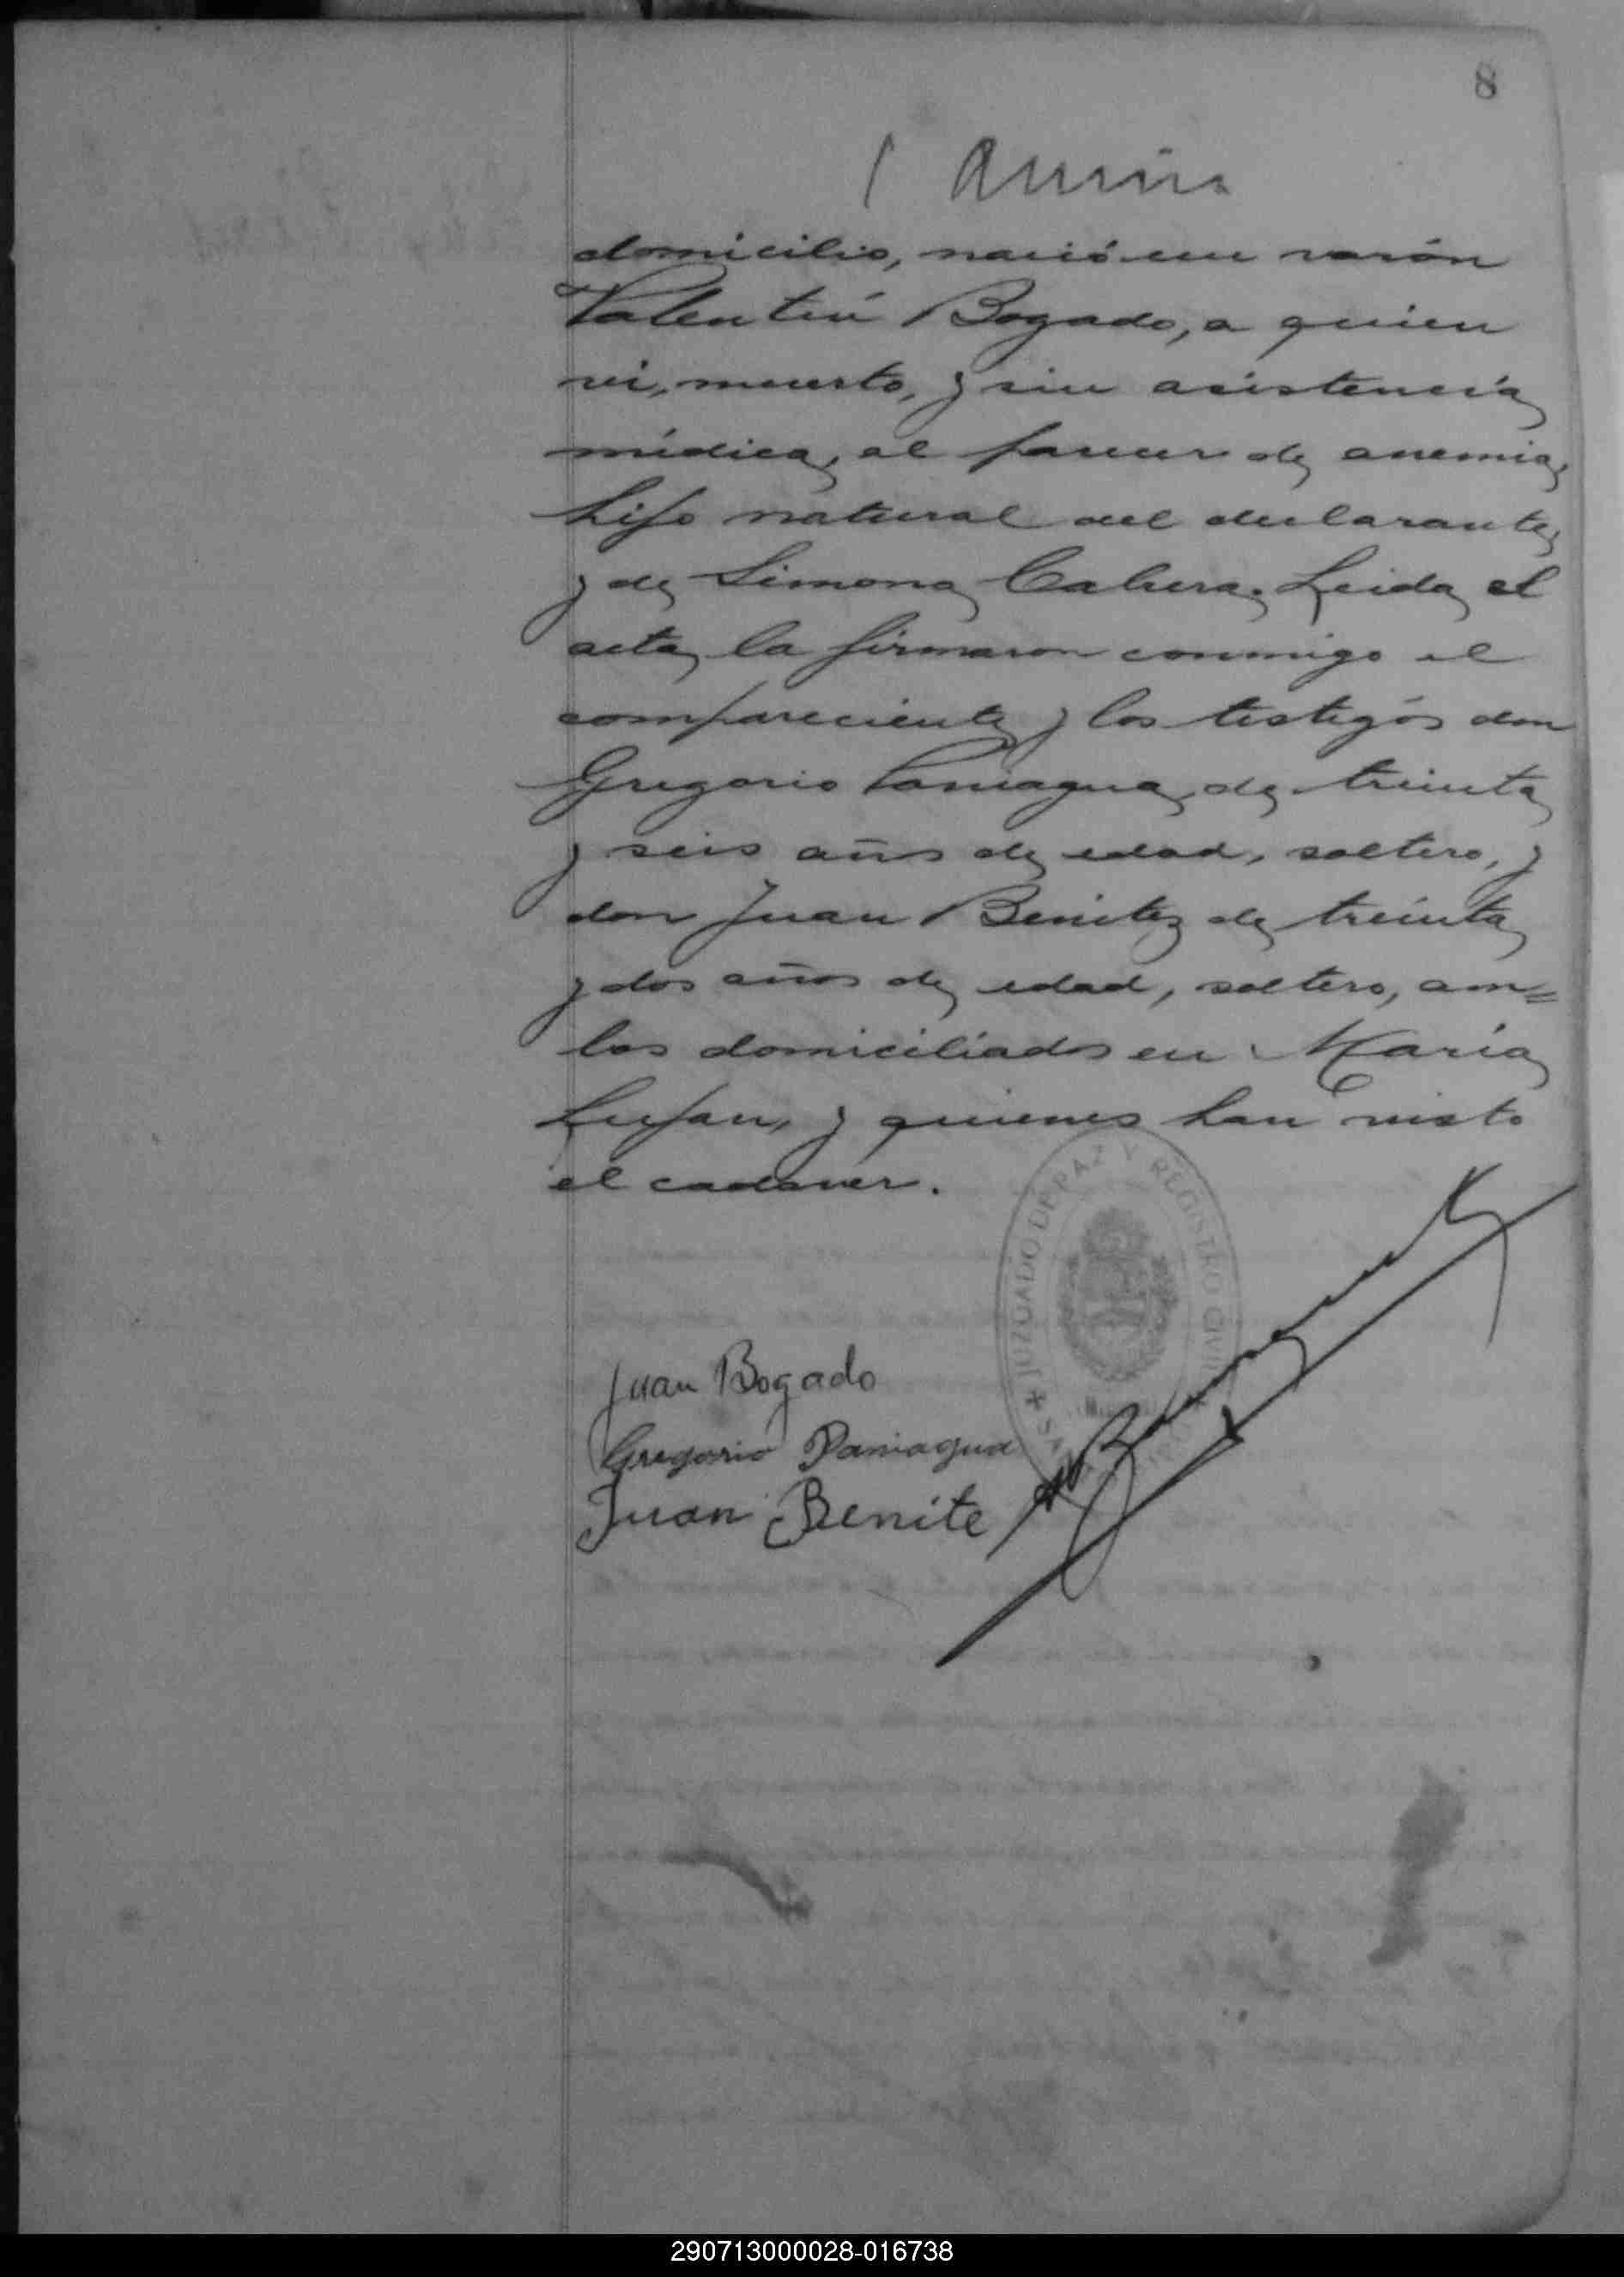 8
domicilio, nació un varón
Valentín Bogado, a quien
vi, muerto, y sin asistencia
médica, al parecer de anemia,
hijo natural del declarante,
y de Simona Cabrera. Leida el
acta, la firmaron conmigo el
compareciente y los testigos don
Gregorio Paniagua, de treinta
y seis años de edad, soltero, y
don Juan Benitez de treinta
y dos años de edad, soltero, am=
bos domiciliados en María
Lujan, y quienes han visto
el cadaver.
JUZGADO DE PAZ Y REGISTRO CIVIL
Juan Bogado
Gregorio Paniagua
Juan Benite
290713000028-016738